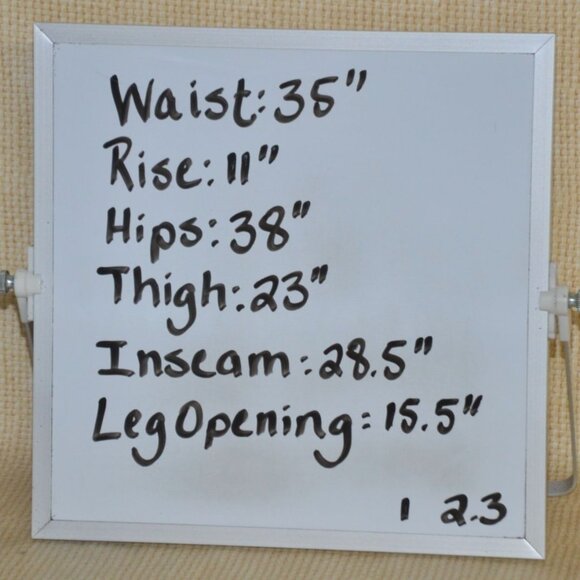 Waist: 35"
Rise: 11"
Hips: 38"
Thigh: 23"
Inseam: 28.5"
Leg Opening: 15.5"
1 2.3